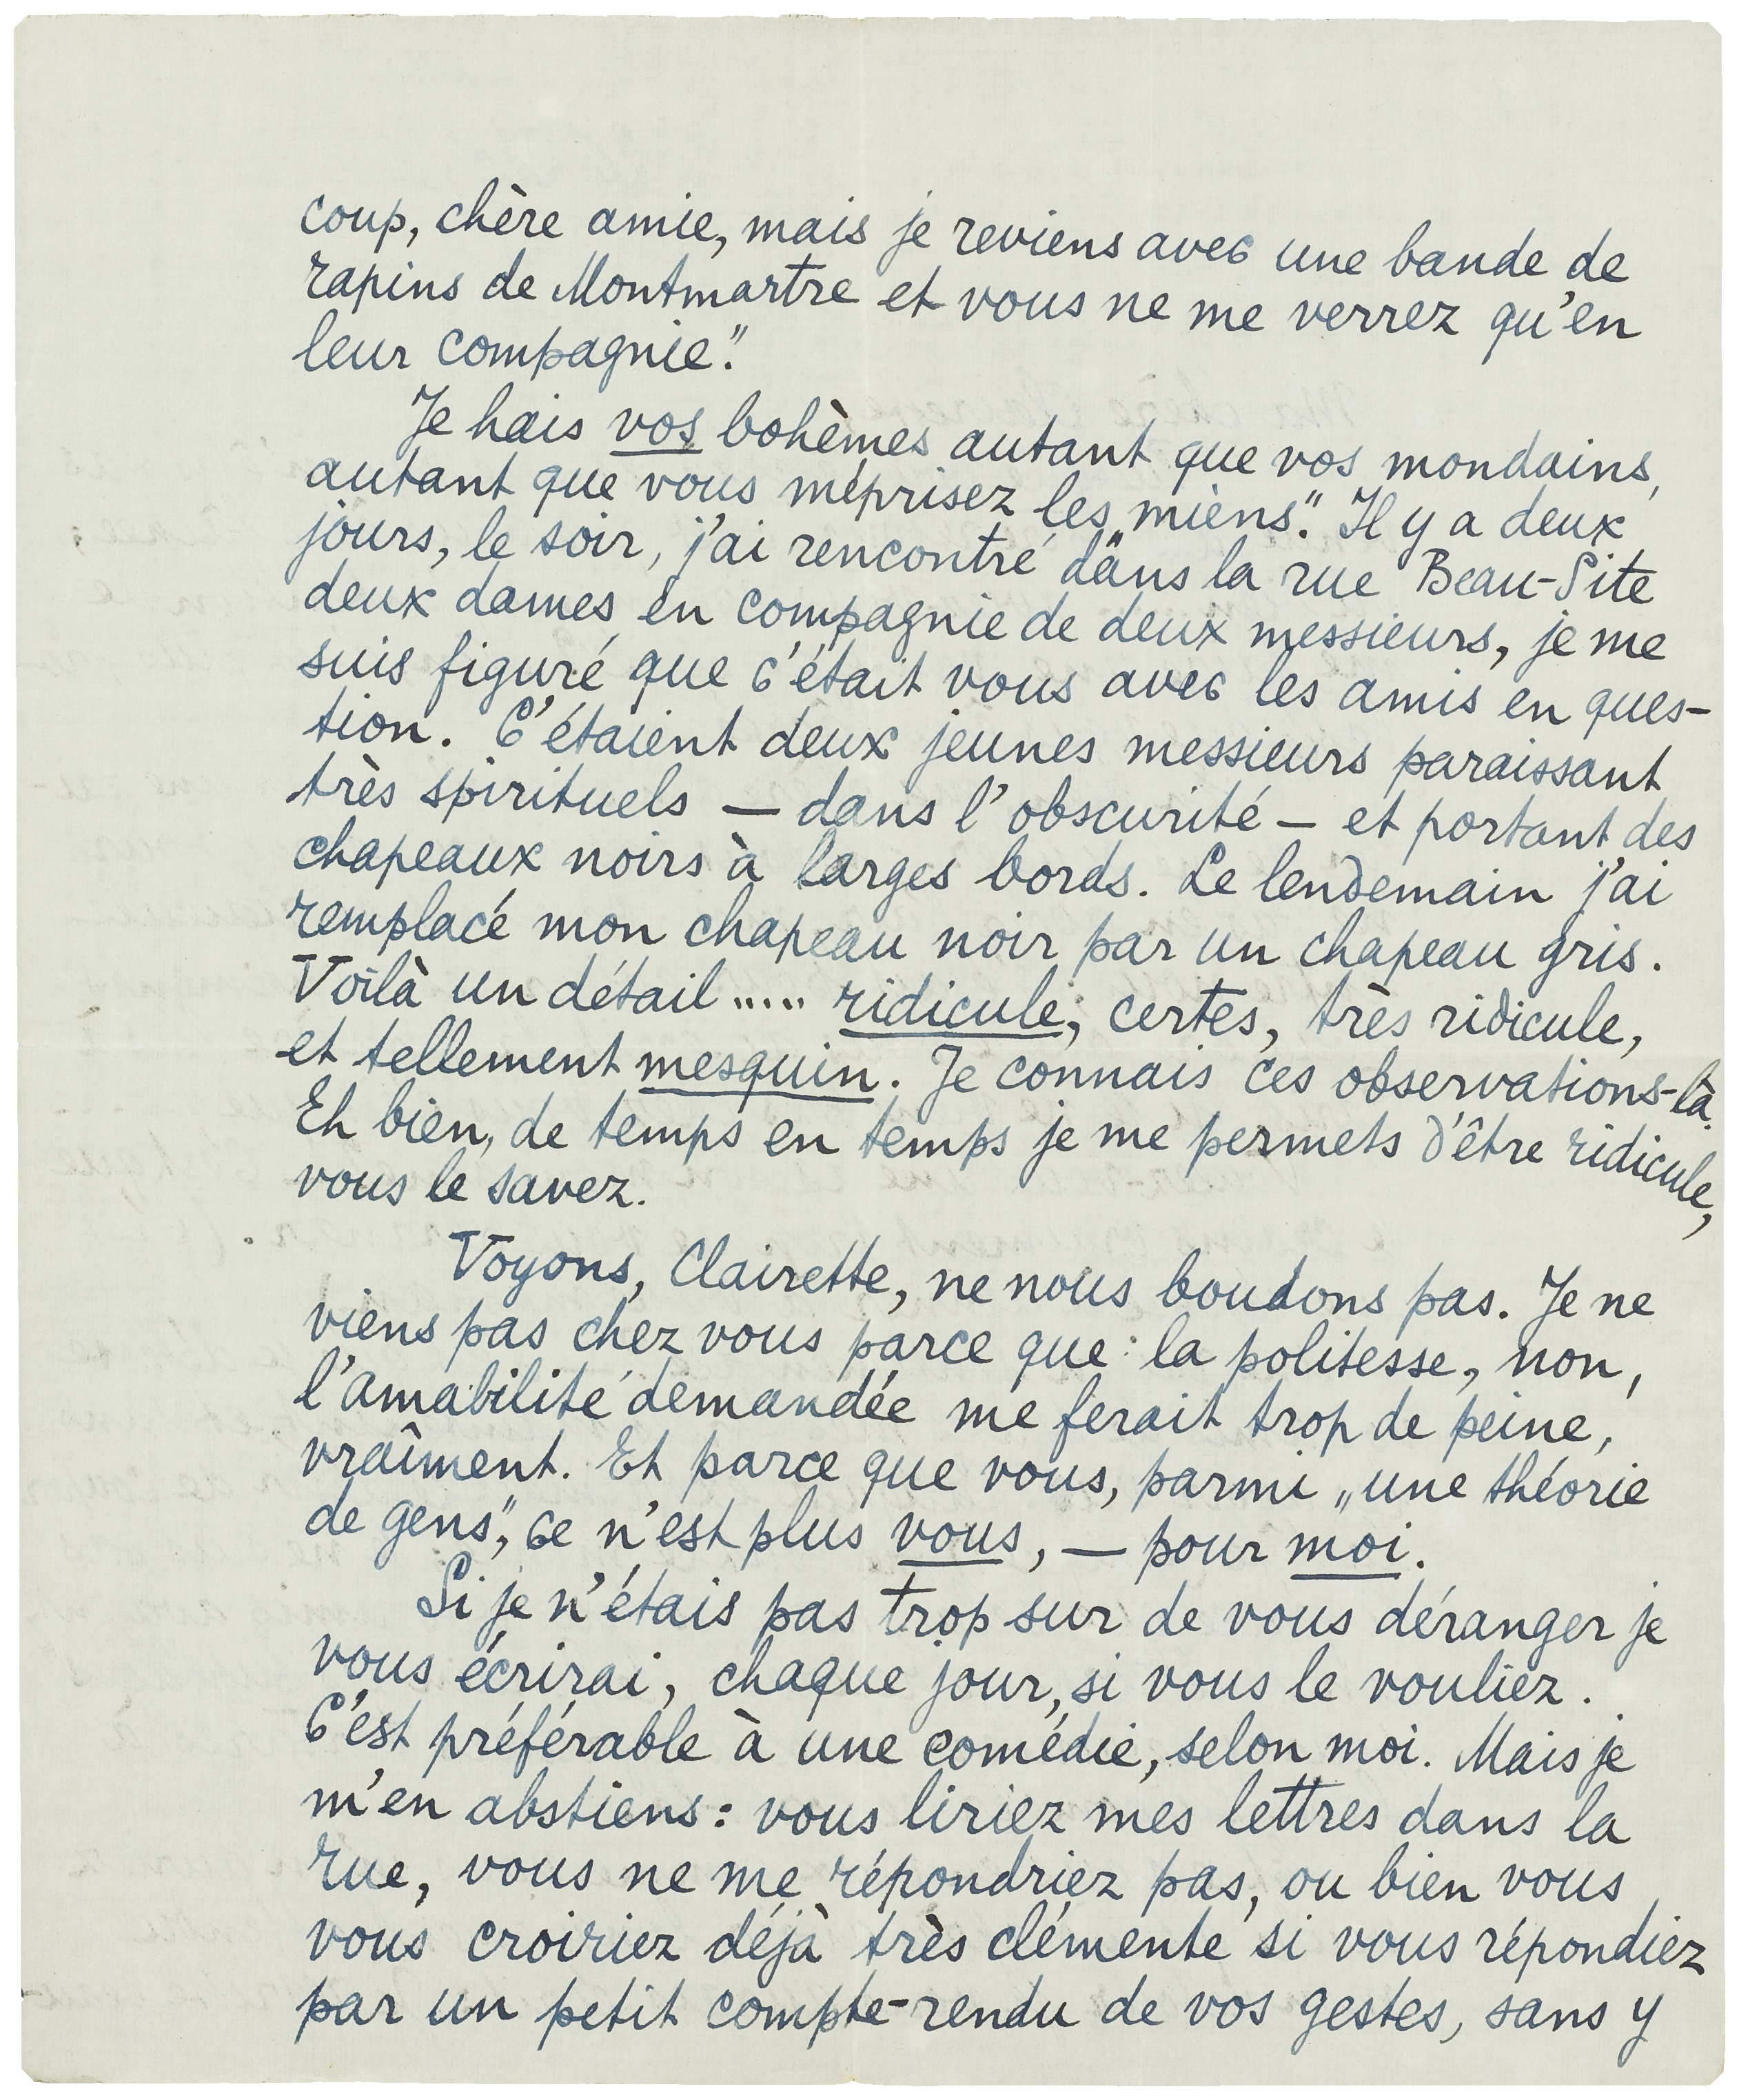 coup, chère amie, mais je reviens avec une bande de
rapins de Montmartre et vous ne me verrez qu'en
leur compagnie."
Je hais vos bohèmes autant que vos mondains,
autant que vous méprisez les „miens." Il y a deux
jours, le soir, j'ai rencontré dans la rue Beau-Site
deux dames en compagnie de deux messieurs, je me
suis figuré que c'était vous avec les amis en ques-
tion. C'étaient deux jeunes messieurs paraissant
très spirituels — dans l'obscurité — et portant des
chapeaux noirs à larges bords. Le lendemain j'ai
remplacé mon chapeau noir par un chapeau gris.
Voilà un détail ..... ridicule, certes, très ridicule,
et tellement mesquin. Je connais ces observations-là.
Eh bien, de temps en temps je me permets d'être ridicule,
vous le savez.
Voyons, Clairette, ne nous boudons pas. Je ne
viens pas chez vous parce que : la politesse, non,
l'amabilité demandée me ferait trop de peine,
vraîment. Et parce que vous, parmi „une théorie
de gens", ce n'est plus vous, — pour moi.
Si je n'étais pas trop sur de vous déranger je
vous écrirai, chaque jour, si vous le vouliez.
C'est préférable à une comédie, selon moi. Mais je
m'en abstiens : vous liriez mes lettres dans la
rue, vous ne me répondriez pas, ou bien vous
vous croiriez déjà très clémente si vous répondiez
par un petit compte-rendu de vos gestes, sans y